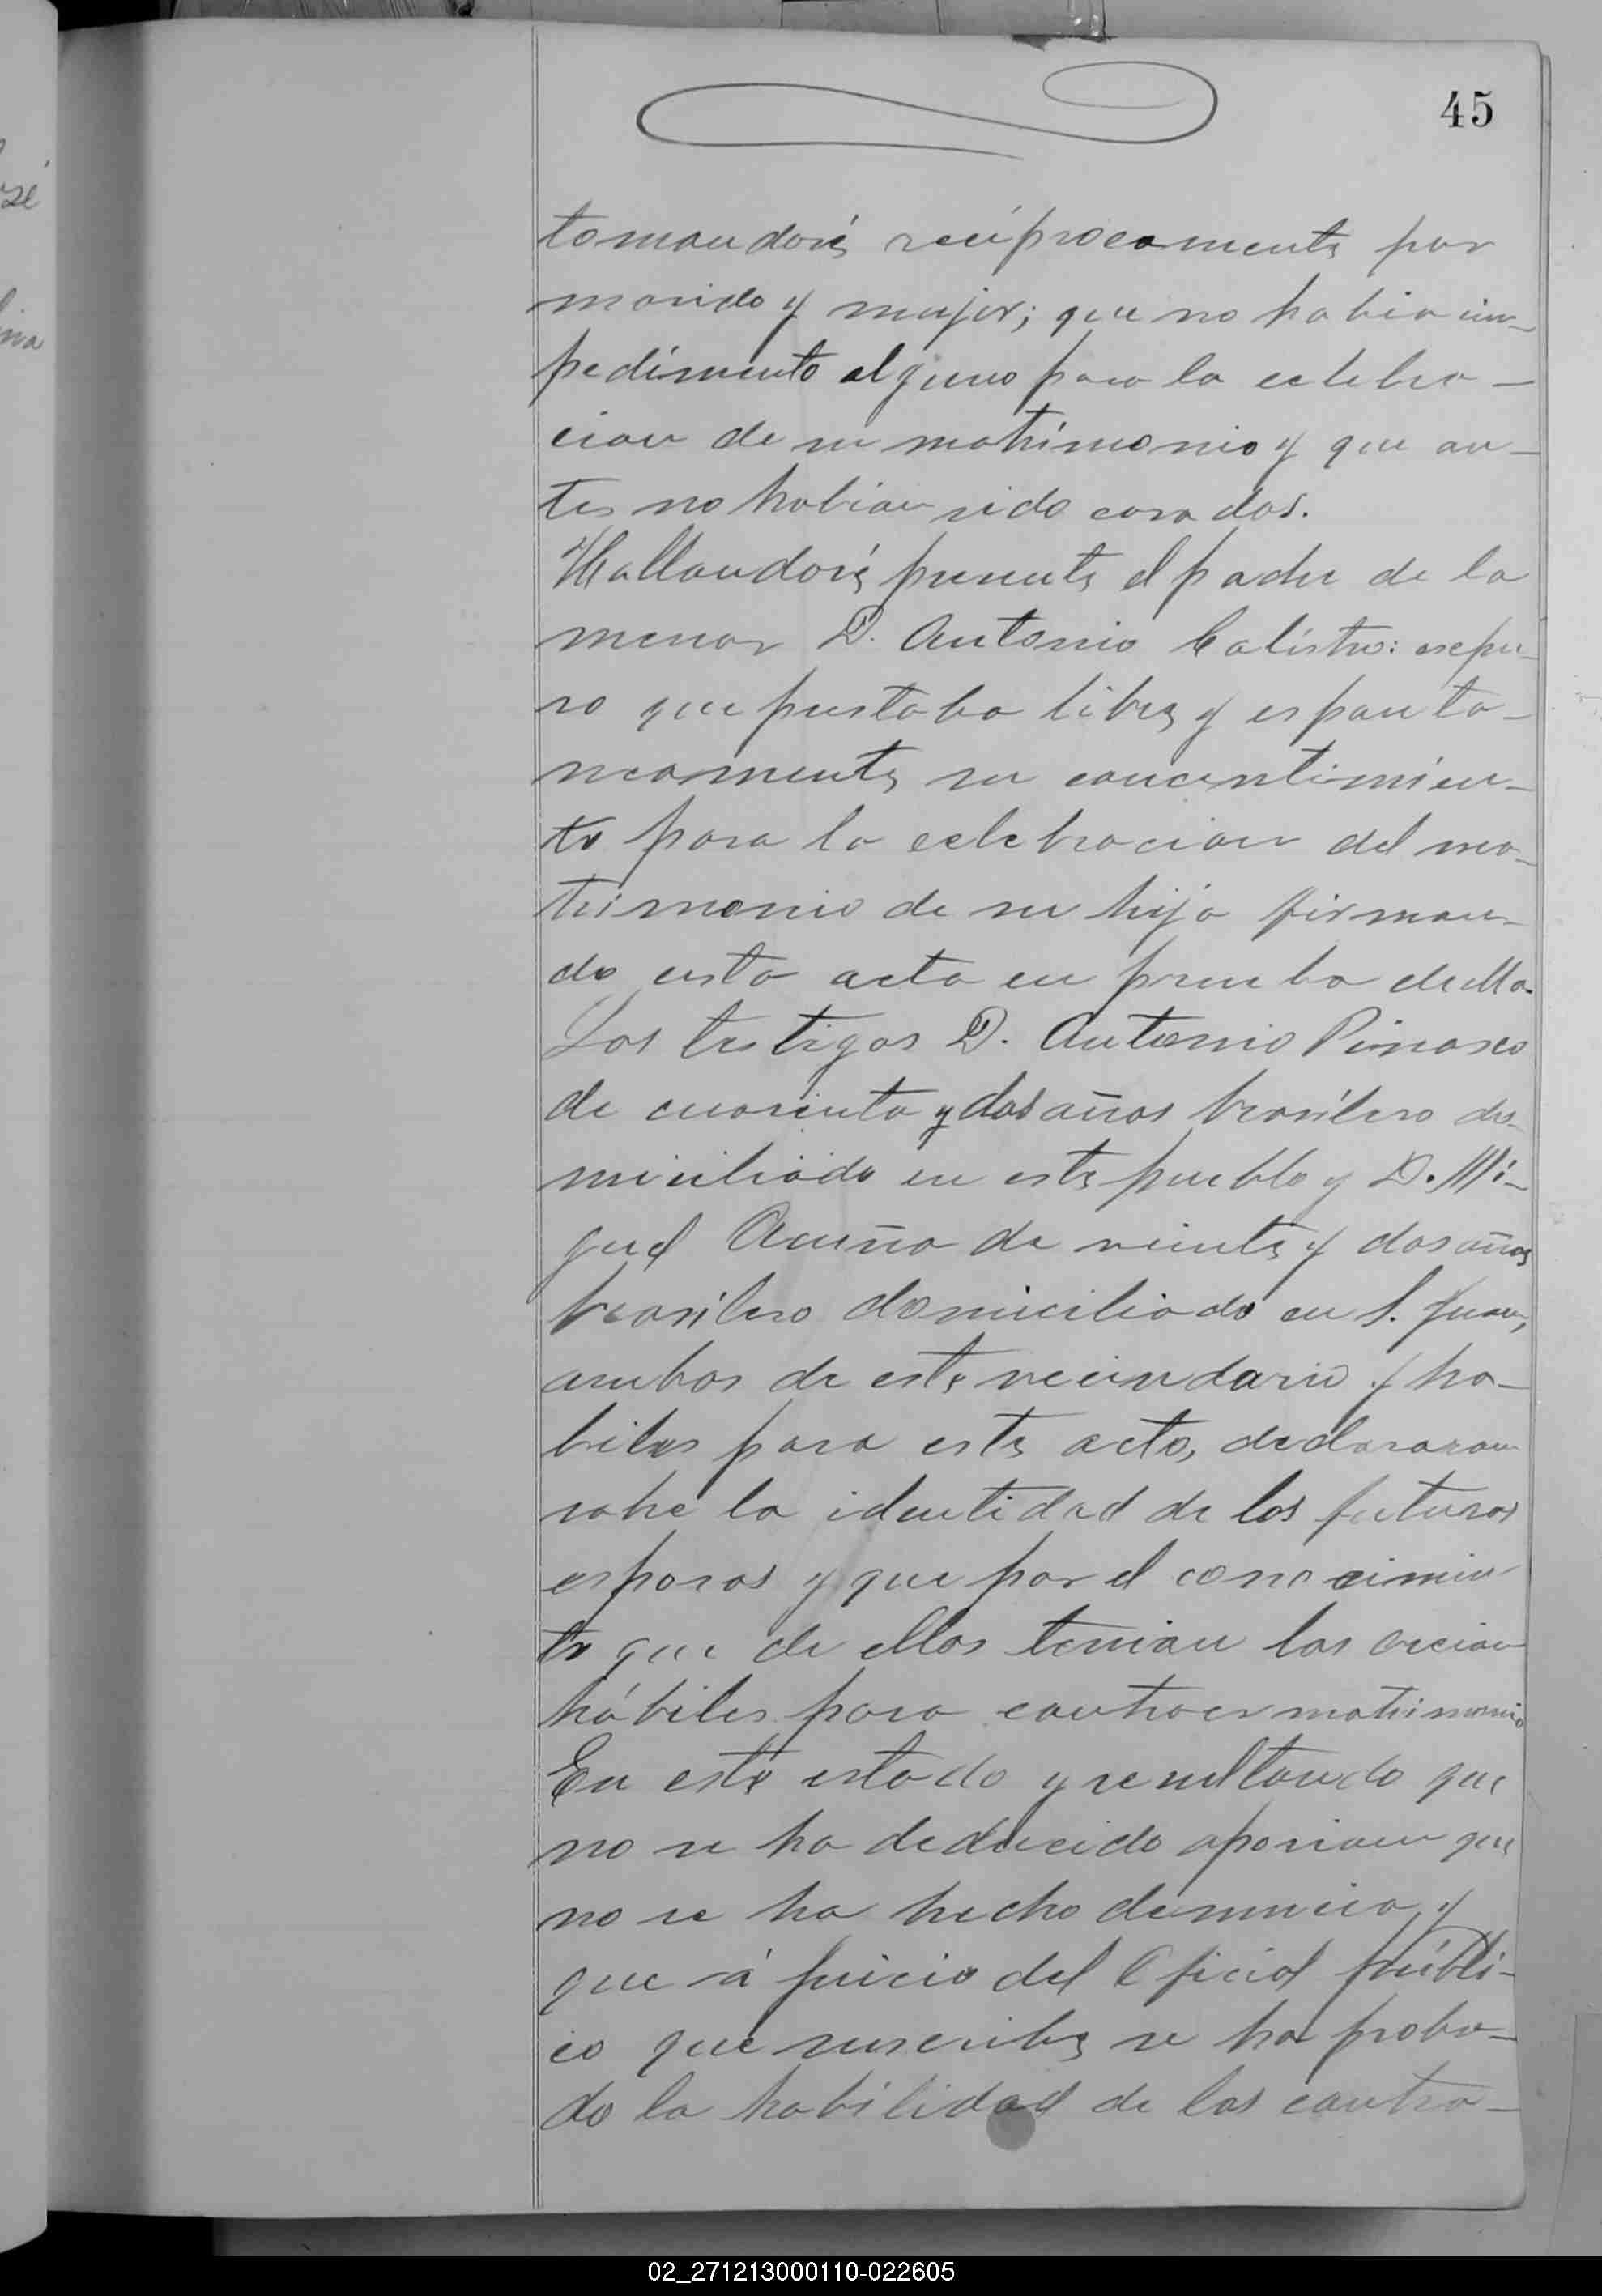 45
tomandosé reciprocamente por
marido y mujer; que no habia im-
pedimento alguno para la celebra-
cion de su matrimonio y que an-
tes no habian sido casados.
Hallandosé presente el padre de la
menor D. Antonio Calistro: espu-
so que prestaba libre y espanta-
neamente su concentimien-
to para la celebracion del ma-
trimonio de su hija firman-
do esta acta en prueba de ella.
Los testigos D. Antonio Pinasco
de cuarenta y dos años brasilero do-
miciliado en este pueblo y D. Mi-
guel Acuña de veinte y dos años
brasilero domiciliado en S. Juan,
ambos de este vecindario y ha-
biles para este acto, declararon
sobre la identidad de los futuros
esposos y que por el conocimien
to que de ellos tenian los creian
hábiles para contraer matrimonio
En este estado y resultando que
no se ha deducido oposicion que
no se ha hecho denuncia y
que á juicio del Oficial públi-
co que suscribe se ha proba-
do la habilidad de los contra-
02_271213000110-022605